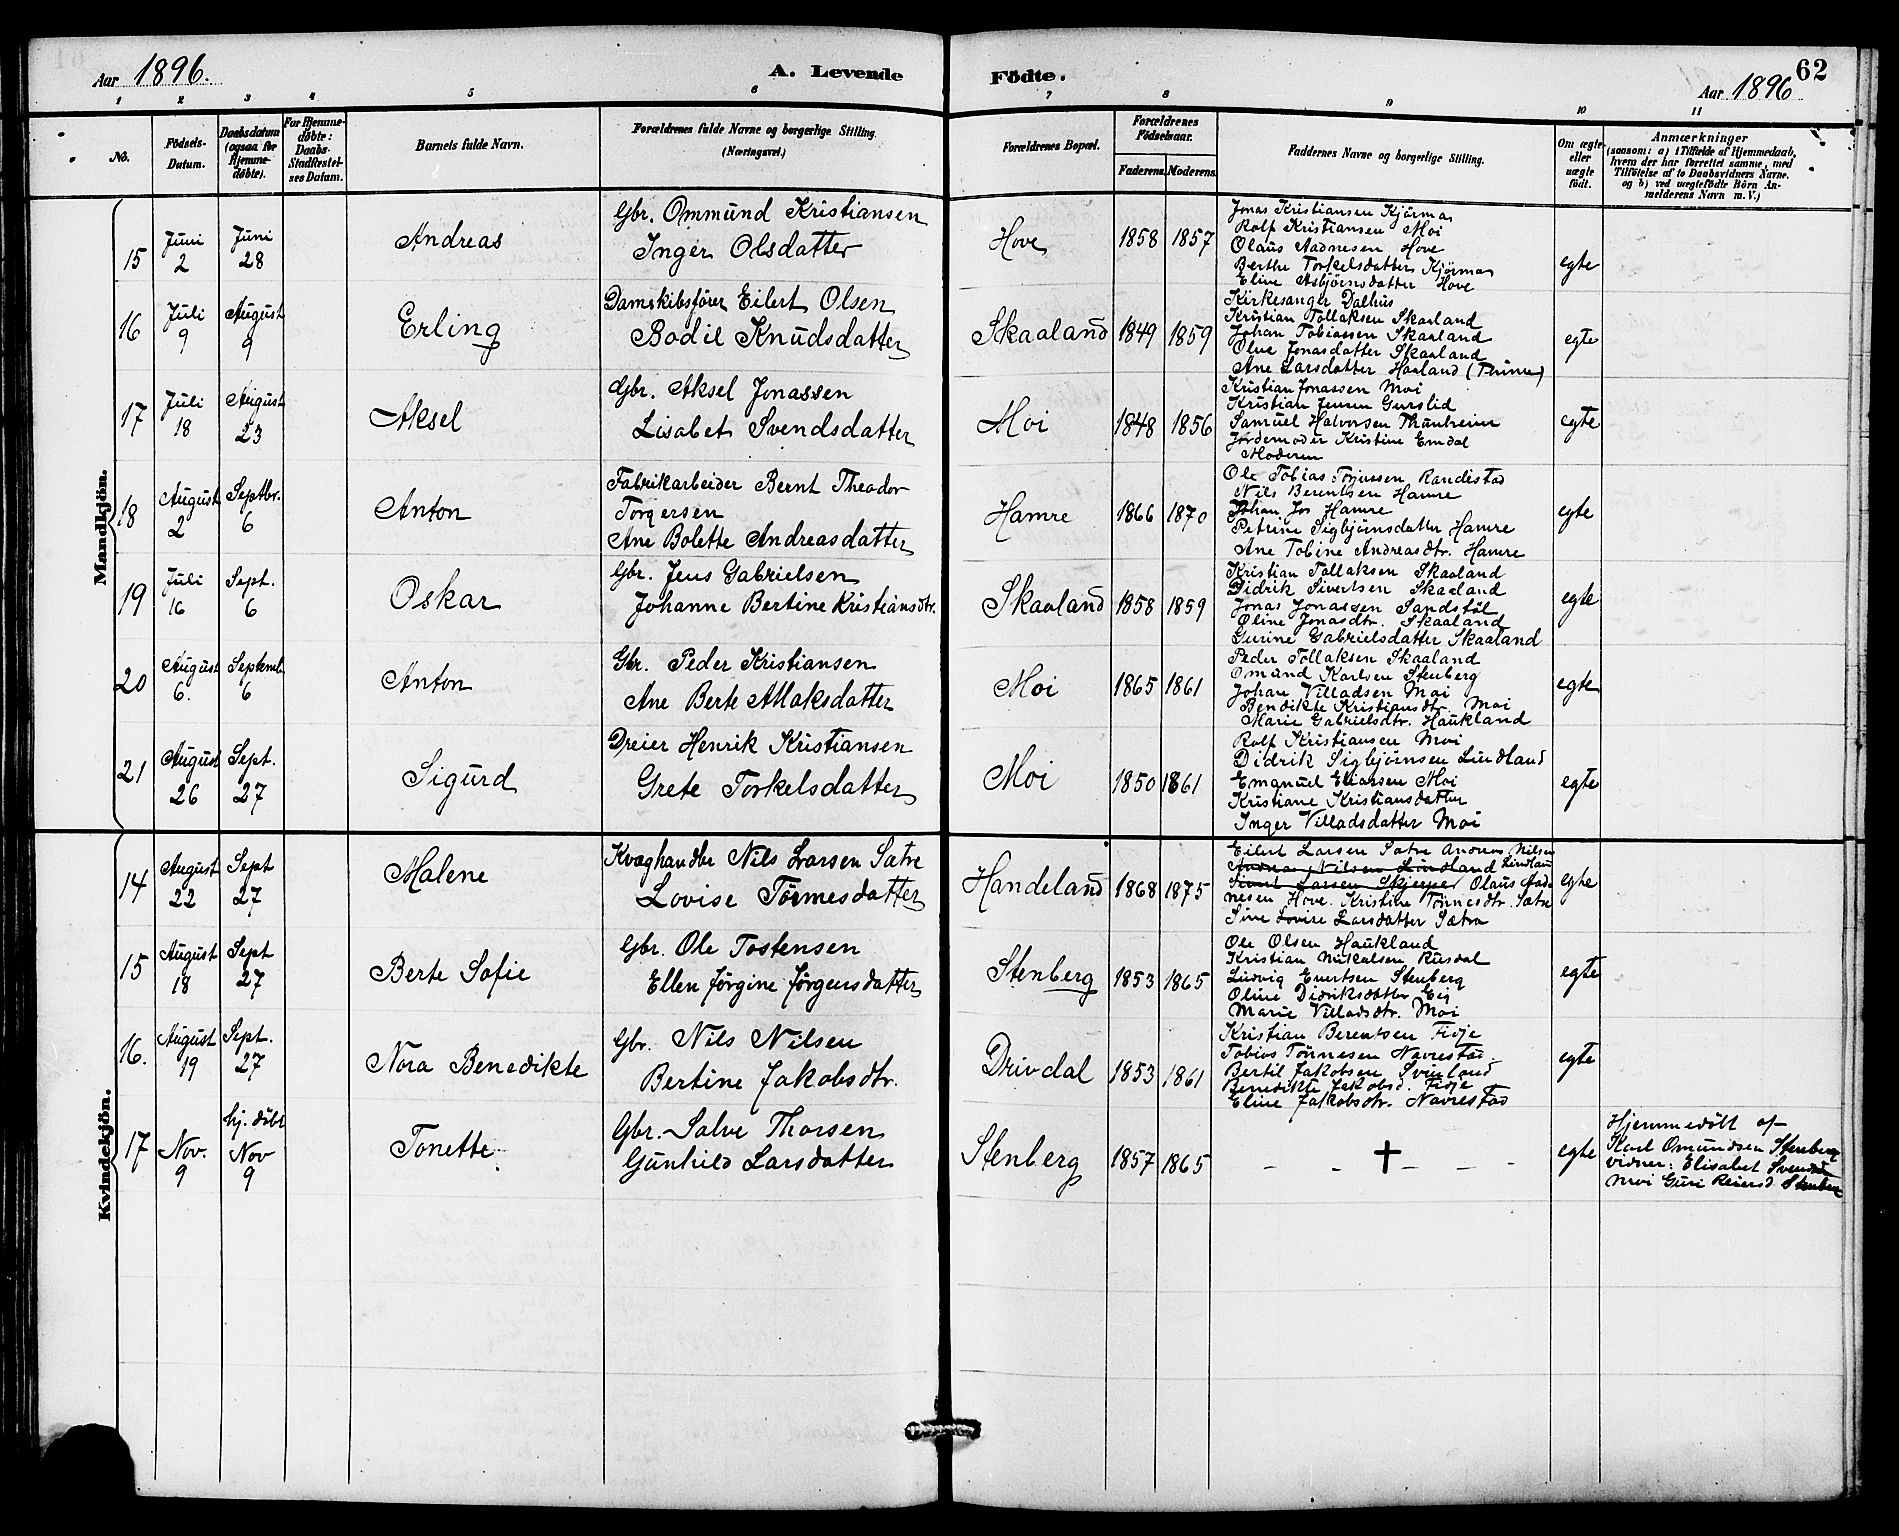 Aar 1896. A. Levende Födte. Aar 1896 62
1 2 3 4 5 6 7 8 9 10 11
No.
Födsels-Datum.
Daabsdatum (ogsaa for Hjemmedøbte).
For Hjemmedøbte: Daabs-Stadfæstelses Datum.
Barnets fulde Navn.
Forældrenes fulde Navne og borgerlige Stilling. (Næringsvei.)
Forældrenes Bopæl.
Forældrenes Födselsaar.
Faderens. Moderens.
Faddernes Navne og borgerlige Stilling.
Om ægte eller uægte født.
Anmærkninger
(saasom: a) i Tilfælde af Hjemmedaab,
hvem der har forrettet samme, med
Tilföielse af to Daabsvidners Navne.
og b) ved uægtefödte Börn An-
melderens Navn m. V.)
Mandkjön.
15 Juni 2 Juni 28 Andreas
Gbr. Ommund Kristiansen
Inger Olsdatter
Hove 1858 1857
Jonas Kristiansen Kjörmo
Rolf Kristiansen Moi
Olaus Aadnesen Hove
Berthe Torkelsdatter Kjørmo
Eline Asbjørnsdatter Hove
egte
16 Juli 9 August 9 Erling
Damskibsfører Eilert Olsen
Bodil Knudsdatter
Skaaland 1849 1859
Kirkesanger Dalhus
Kristian Tollaksen Skaaland
Johan Tobiassen Skaaland
Oline Jonasdatter Skaaland
Ane Larsdatter Haaland (Thime)
egte
17 Juli 18 August 23 Aksel
Gbr. Aksel Jonassen
Lisabet Svendsdatter
Moi 1848 1856
Kristian Jonassen Moi
Kristian Jensen Gurslid
Samuel Halvorsen
Jordemoder Kristine Emdal
Moderen
egte
18 August 2 Septbr. 6 Anton
Fabrikarbeider Bernt Theodor
Torgersen
Ane Bolette Andreasdatter
Hamre 1866 1870
Ole Tobias Torjussen Randestad
Nils Berentsen Hamre
Johan Jos Hamre
Petrine Sigbjörnsdatter Hamre
Ane Tobine Andreasdtr. Hamre
egte
19 Juli 16 Sept. 6 Oskar
Gbr. Jens Gabrielsen
Johanne Bertine Kristiansdtr.
Skaaland 1858 1859
Kristian Tollaksen Skaaland
Didrik Sivertsen Skaaland
Jonas Jonassen Sandstöl
Oline Jonasdtr. Skaaland
Gurine Gabrielsdatter Skaaland
egte
20 August 6. Septemb. 6 Anton
Gbr. Peder Kristiansen
Ane Berte Atlaksdatter
Moi 1865 1861
Peder Tollaksen Skaaland
Omund Karlsen Stenberg
Johan Villadsen Moi
Bendikte Kristiansdtr. Moi
Marie Gabrielsdtr. Haukland
egte
21 August 26 Sept. 27 Sigurd
Dreier Henrik Kristiansen
Grete Torkelsdatter
Moi 1850 1861
Rolf Kristiansen Moi
Didrik Sigbjørnsen Lindland
Emanuel Eliassen Moi
Kristiane Kristiansdatter
Inger Villadsdatter Moi
egte
Kvindekjön.
14 August 22 Sept 27 Malene
Kvæghandler Nils Larsen Sætre
Lovise Tönnesdatter
Handeland 1868 1875
Eilert Larsen Sætre Andreas Nilsen
Andreas Nilsen Lindland Lindland
Larsen Skjerpe Olaus Aad-
nesen Hove. Kristine Tönnesdtr. Sætre
Sine Lovise Larsdatter Sætra
egte
15 August 18 Sept 27 Berte Sofie
Gbr. Ole Tostensen
Ellen Jørgine Jørgensdatter
Stenberg 1853 1865
Ole Olsen Haukland
Kristian Mikalsen Rusdal
Ludvig Evertsen Stenberg
Oline Didriksdatter Eig
Marie Villadsdtr. Moi
egte
16. August 19 Sept. 27 Nora Benedikte
Gbr. Nils Nilsen
Bertine Jakobsdtr.
Drivdal 1853 1861
Kristian Berentsen Fidje
Tobias Tönnesen Navrestad.
Bertil Jakobsen Svinland
Benedikte Jakobsd. Fidje
Eline Jakobsdtr. Navrestad
egte
17 Nov. 9 hj. döbt Nov 9 Tonette
Gbr. Salve Thorsen
Gunhild Larsdatter
Stenberg 1857 1865
– – † – – –
egte
Hjemmedöbt af
Karl Omundsen Stenberg
vidner: Elisabet Svendsd
Moi Guri Reiersd. Stenberg